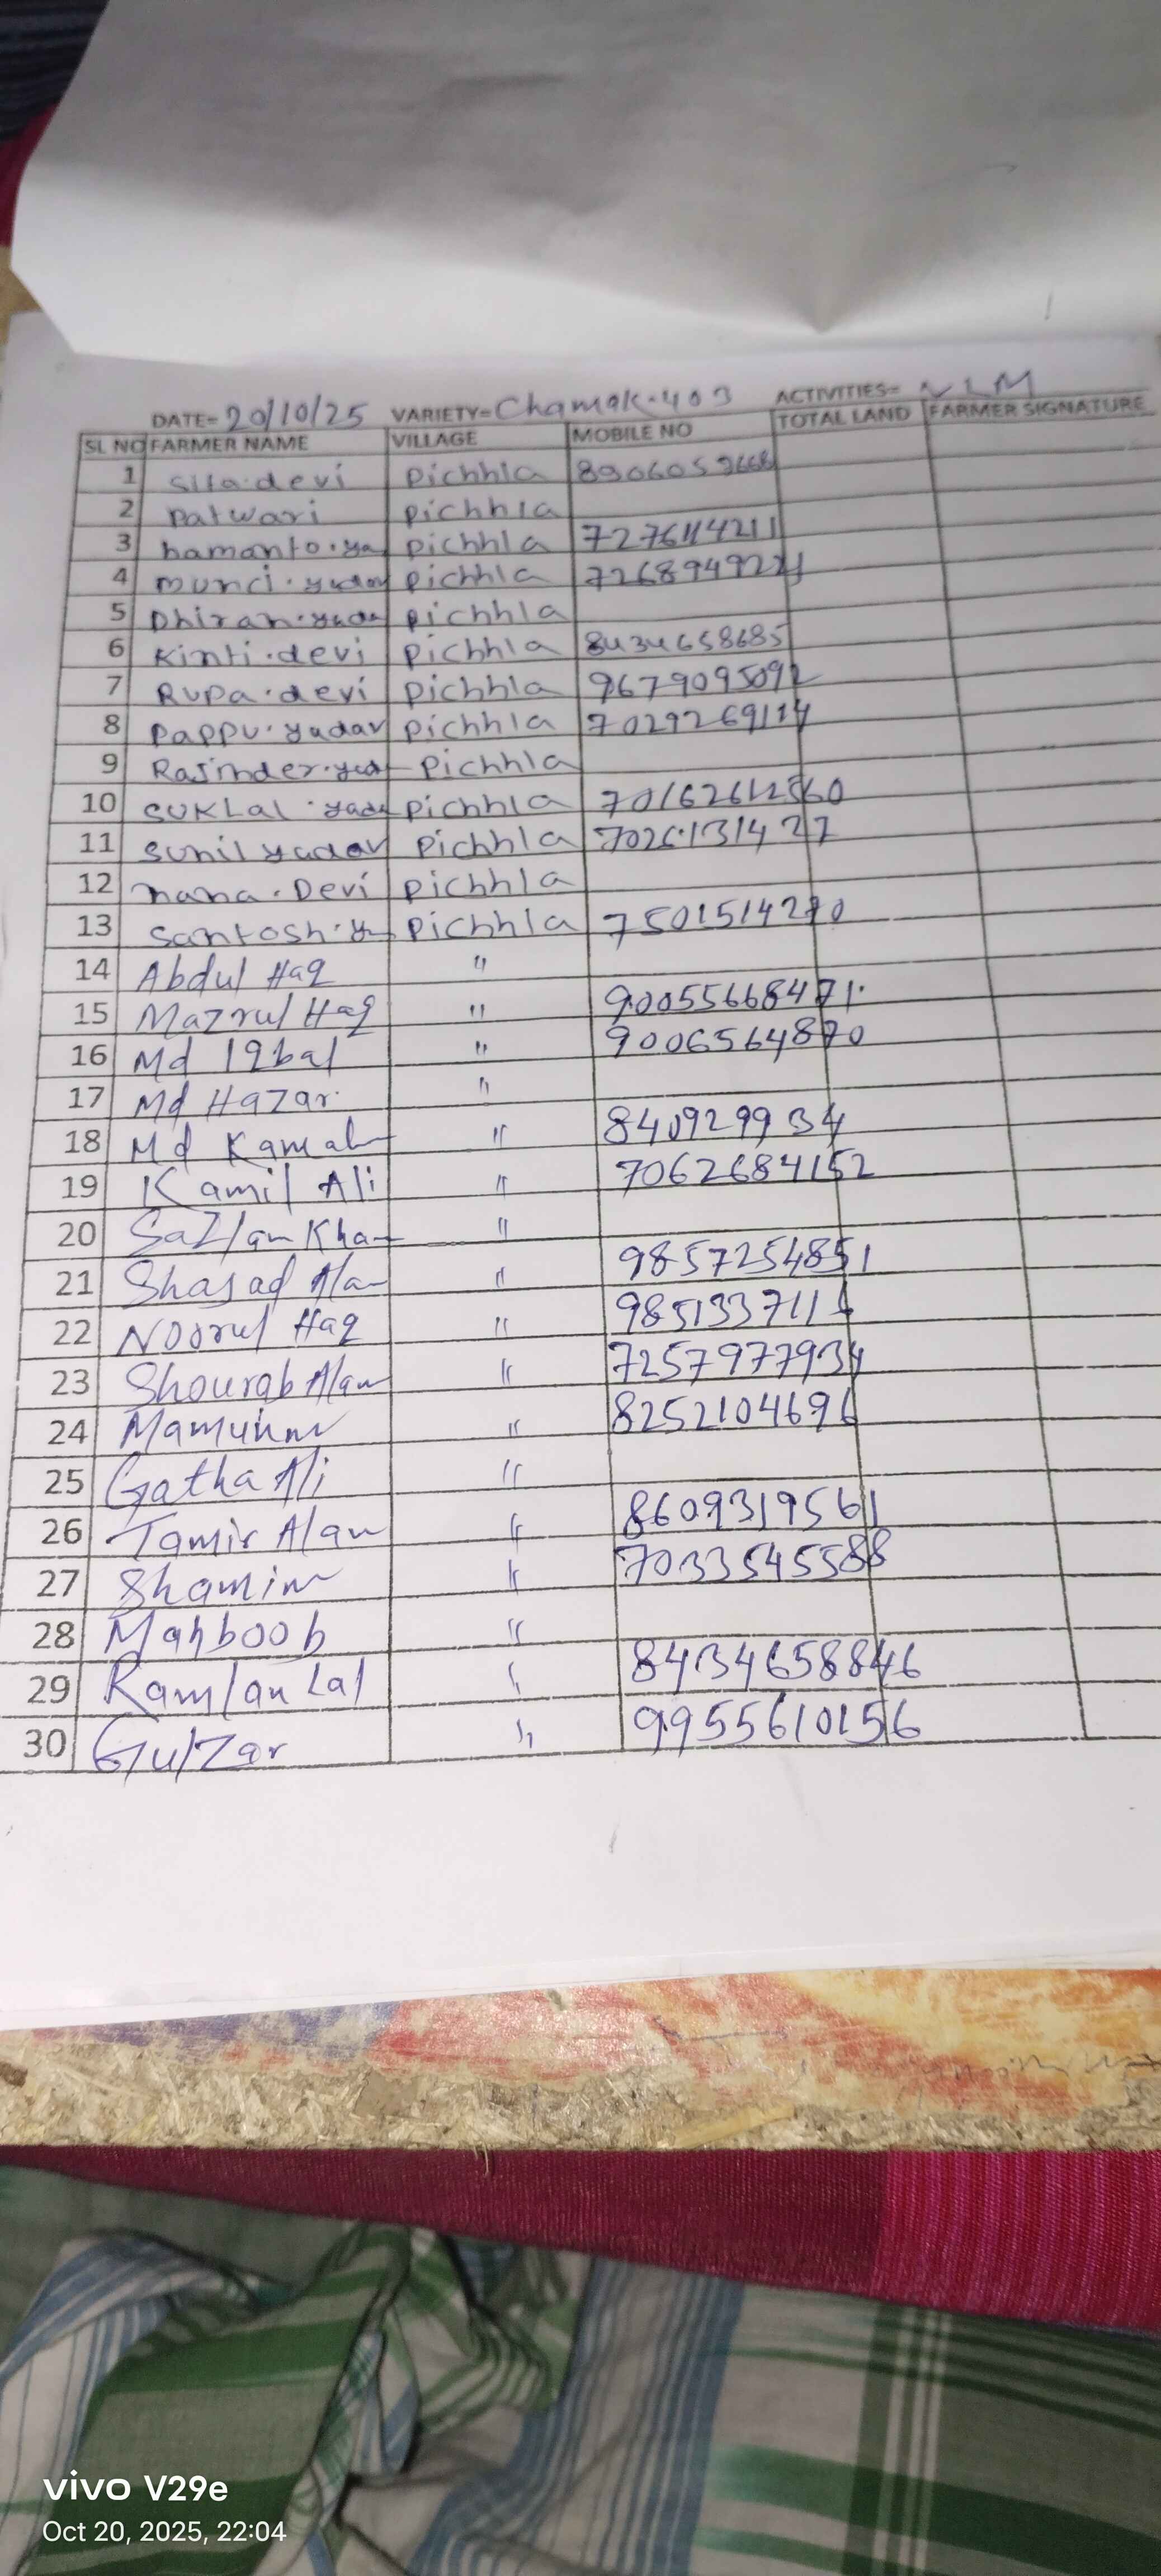 DATE= 20/10/25 VARIETY= Chamak-403 ACTIVITIES= VLM
SL NO FARMER NAME VILLAGE MOBILE NO TOTAL LAND FARMER SIGNATURE
1 Sita.devi Pichhla 8906059668
2 Patwari Pichhla
3 hamanto.ya Pichhla 7276114211
4 munci.yadav Pichhla
5 Dhiran.yada Pichhla
6 Kinti.devi Pichhla 8434658685
7 Rupa.devi Pichhla 9679095092
8 Pappu.yadav Pichhla 7029269114
9 Rajinder.yad Pichhla
10 SUKLal.yada Pichhla
11 Sunil yadav Pichhla 7026131427
12 nana.Devi Pichhla
13 Santosh.y Pichhla 7501514270
14 Abdul Haq "
15 Mazrul Haq " 90055668471
16 Md Iqbal " 9006564870
17 Md Hazar "
18 Md Kamal " 840929934
19 Kamil Ali " 7062684152
20 Sazlan Khan "
21 Shasad Alam " 9857254851
22 Noorul Haq " 9851337116
23 Shourab Alam " 7257977934
24 " 8252104696
25 Gatha Ali "
26 Tamir Alam " 8609319561
27 Shamim " 7033545588
28 Mahboob "
29 Ramlan Lal " 84134658846
30 Gulzar " 9955610156
vivo V29e
Oct 20, 2025, 22:04